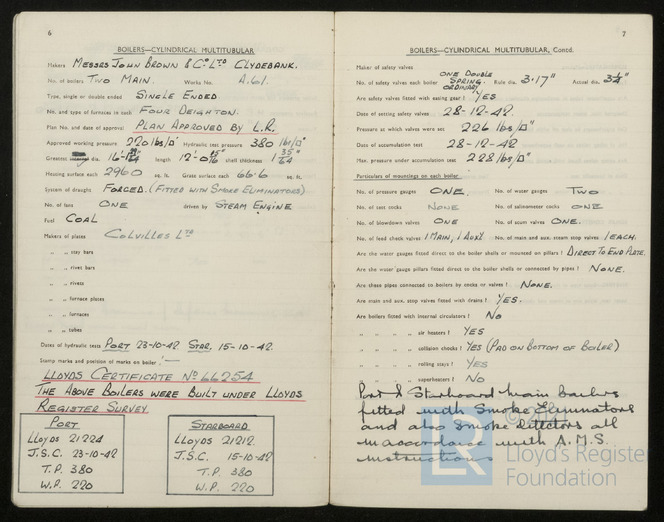 6
BOILERS—CYLINDRICAL MULTITUBULAR
Makers MESSRS JOHN BROWN & Co LTD CLYDEBANK.
No. of boilers TWO MAIN. Works No. A.61.
Type, single or double ended SINGLE ENDED
No. and type of furnaces in each FOUR DEIGHTON.
Plan No. and date of approval PLAN APPROVED BY L.R.
Approved working pressure 220 lbs/□" Hydraulic test pressure 380 lbs/□"
Greatest dia. length 12-0 shell thickness 1 35/64"
Heating surface each 2960 sq. ft. Grate surface each 66.6 sq. ft.
System of draught FORCED. (FITTED WITH SMOKE ELIMINATORS)
No. of fans ONE driven by STEAM ENGINE
Fuel COAL
Makers of plates COLVILLES LTD
„ „ stay bars
„ „ rivet bars
„ „ rivets
„ „ furnace plates
„ „ furnaces
„ „ tubes
Dates of hydraulic tests PORT 23-10-42 STAR. 15-10-42.
Stamp marks and position of marks on boiler :—
LLOYDS CERTIFICATE No 66254
THE ABOVE BOILERS WERE BUILT UNDER LLOYDS
REGISTER SURVEY.
PORT
LLOYDS 21224
J.S.C. 23-10-42
T.P. 380
W.P. 220
STARBOARD
LLOYDS 21212.
J.S.C. 15-10-42
T.P. 380
W.P. 220
7
BOILERS—CYLINDRICAL MULTITUBULAR, Contd.
Maker of safety valves
No. of safety valves each boiler ONE DOUBLE SPRING ORDINARY Rule dia. 3.17" Actual dia. 3¼"
Are safety valves fitted with easing gear? YES
Date of setting safety valves 28-12-42.
Pressure at which valves were set 226 lbs/□"
Date of accumulation test 28-12-42
Max. pressure under accumulation test 228 lbs/□"
Particulars of mountings on each boiler
No. of pressure gauges ONE. No. of water gauges TWO
No. of test cocks NONE No. of salinometer cocks ONE
No. of blowdown valves ONE No. of scum valves ONE.
No. of feed check valves 1 MAIN, 1 AUXY. No. of main and aux. steam stop valves 1 EACH.
Are the water gauges fitted direct to the boiler shells or mounted on pillars? DIRECT TO END PLATE.
Are the water gauge pillars fitted direct to the boiler shells or connected by pipes? NONE.
Are these pipes connected to boilers by cocks or valves? NONE.
Are main and aux. stop valves fitted with drains? YES.
Are boilers fitted with internal circulators? NO
„ „ „ air heaters? YES
„ „ „ collision chocks? YES (PAD ON BOTTOM OF BOILER)
„ „ „ rolling stays? YES
„ „ „ superheaters? NO
Port & Starboard main boilers
fitted with Smoke Eliminators
and also smoke detectors all
in accordance with A.M.S.
instructions
© 2
LR
Lloyd's Register
Foundation